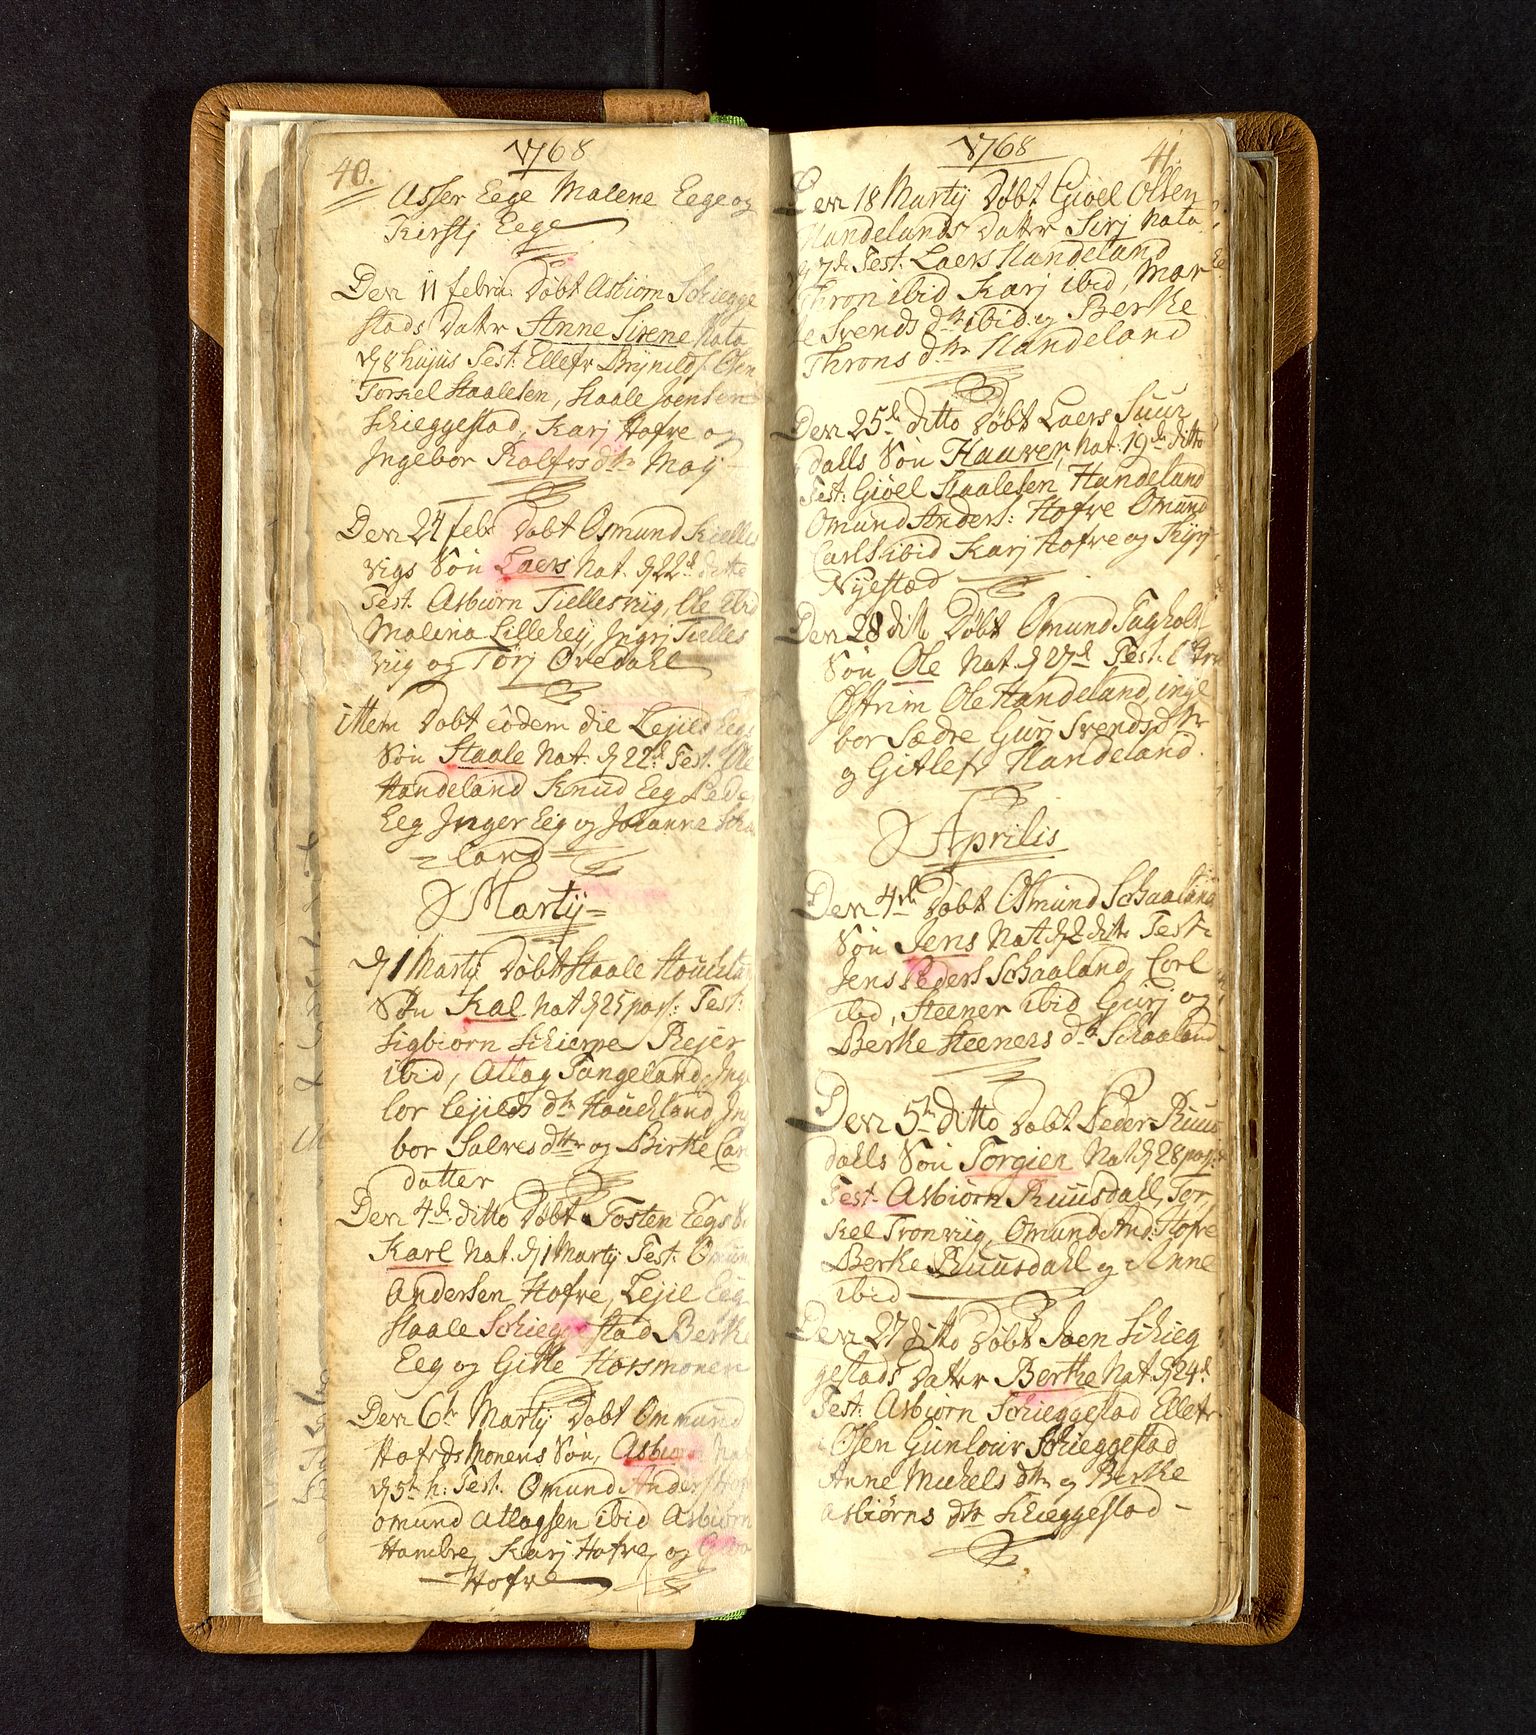 1768
40.
Asser Eege Malene Eege og
Kirstj Eege
Den 11 febru: Døbt Asbiørn Schiegge
stads Datter Anne Sirene Nata
d 8 hujus Test: Ellefr Brÿnilds: Olsen
Torkel Staalesen, Staale Joensen
Schieggestad, Karj Hofve og
Ingebor Rolfvs dtr Moÿ
Den 24 febr Døbt Osmund Kielles
vigs Søn Laers Nat. d 22d ditto
Test. Asbiørn Tiellesvig, Ole ibid
Malena Lilleheÿ, Ingrj Tielles
viig og Torj Ovedahl
ittem Døbt eodem die Lejield Eegs
Søn Staale Nat. d 22d Test. Ole
Handeland Knud Eeg Peder
Eeg Inger Eeg og Johanne Scha
land
Martÿ
d 1 Martÿ Døbt Staale Houchla
Søn Kal nat d 25 pass: Test:
Sigbiørn Schierpe Rejer
ibid, Atlag Tangeland, Inge
bor Lejilds dtr Houchland, In
bor Salves dtr og Birthe Carl
datter
Den 4de ditto Døbt Tosten Eegs S
Karl Nat. d 1 Martÿ Test: Omun
Andersen Hofve, Lejel Eeg
Staale Schieggestad Berthe
Eeg og Gitle Horsmonen
Den 6te Martÿ Døbt Ommund
Hofvdsmonens Søn, Asbiørn Nat
d 5te h: Test. Omund Anders: Hof
Omund Atlagsen ibid Asbiørn
Hambre, Karj Hofve, og
Hofve
1768
41.
Den 18 Martÿ Døbt Giøel Olsen
Handelands Datter Sirj Nata
d 7de Test: Laers Handeland
Thron ibid Karj ibid, Mar
te Svends dtr ibid og Berthe
Throns dtr Handeland
Den 25d ditto Døbt Laers Suur
dalls Søn Haaver, nat. 19de ditto
Test: Giøel Staalesen Handeland
Omund Anders: Hofve Omund
Carls ibid Karj Hofve og Kÿrj
Nÿestad
Den 28 ditto Døbt Omund Fagholt
Søn Ole Nat. d 27d Test.
Østrim Ole Handeland, inge
bor Sædre Gurj Svends dtr
og Gitlefr Handeland.
Aprilis
Den 4de Døbt Osmund Schaaland
Søn Jens Nat d 2 ditto Test:
Jens Peders Schaaland, Corl
ibid, Steener ibid Gurj og
Berthe Steeners dtr Schaaland
Den 5te ditto Døbt Peder Ruus
dalls Søn Torgier Nat d 28 pass:
Test. Asbiørn Ruusdall, Tor
kel Tronviig, Omund And: Hofve
Berthe Ruusdahl og Anne
ibid
Den 27 ditto Døbt Joen Schieg
gestads Datter Berthe Nat d 24d
Test: Asbiørn Schieggestad Ellefr
Olsen Gunlour Schieggestad
Anne Michels dtr og Berthe
Asbiørns dtr Schieggestad